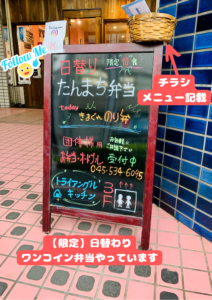 Follow Me
チラシ
メニュー記載
日替り 限定10食
たんまち弁当
today
きまぐれ のり弁
団体様用
お弁当・オードブル 受付中
045-534-6095
トライアングル
キッチン
3F
【限定】日替わり
ワンコイン弁当やっています